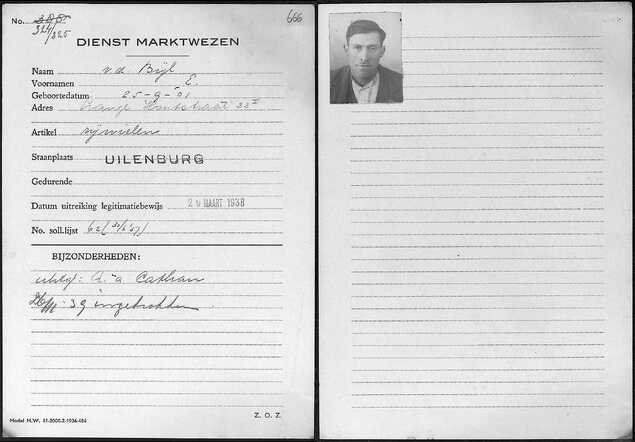 No. 385
324/325
666
DIENST MARKTWEZEN
Naam v.d. Bijl
Voornamen E.
Geboortedatum 25-9-'01
Adres Lange Houtstraat 33
Artikel rijwielen
Staanplaats UILENBURG
Gedurende
Datum uitreiking legitimatiebewijs 29 MAART 1938
No. soll.lijst 62
BIJZONDERHEDEN:
a Cathan
ingetrokken
Model M.W. 51-2000-2-1936-486
Z. O. Z.